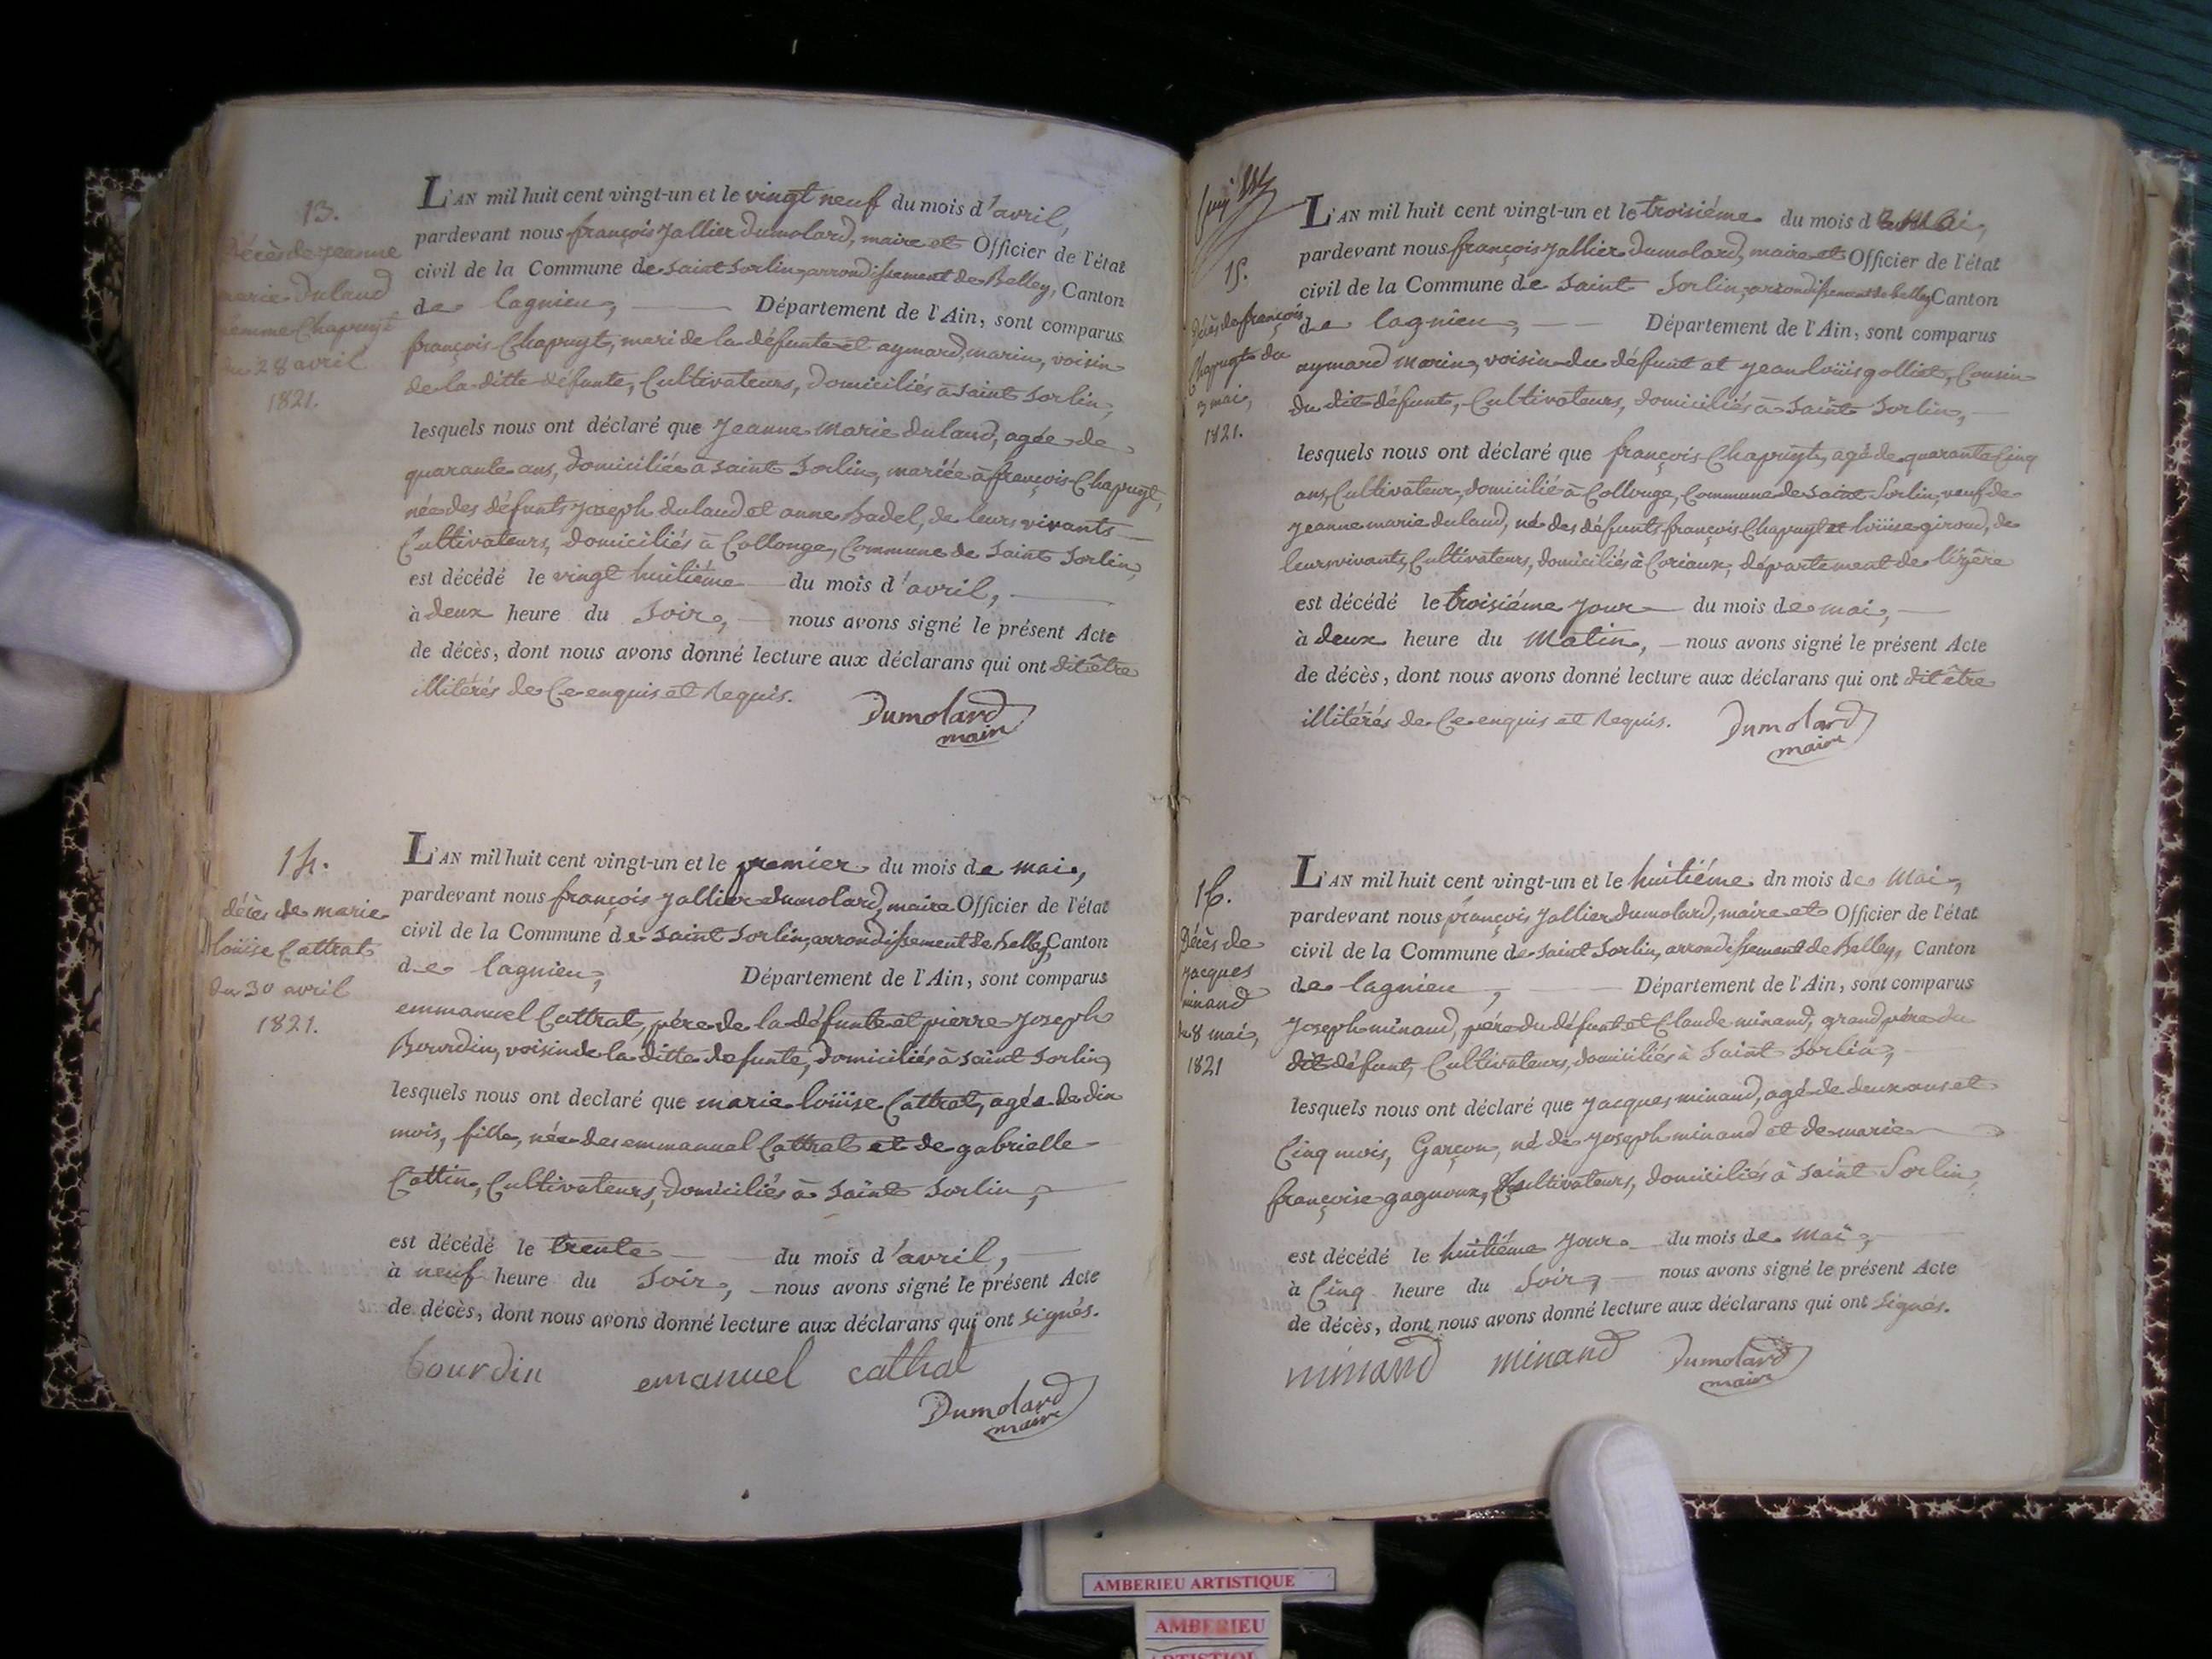 13.
Décès de jeanne
marie dulaud
femme Chapuyt
du 28 avril
1821.
L'AN mil huit cent vingt-un et le vingt neuf du mois d'avril,
pardevant nous françois Jallier Dumolard, maire et Officier de l'état
civil de la Commune de saint Sorlin, arrondissement de Belley, Canton
de lagnieu, Département de l'Ain, sont comparus
françois Chapuyt, mari de la défunte et aymard marin, voisin
de la ditte défunte, Cultivateurs, domiciliés à saint Sorlin,
lesquels nous ont déclaré que Jeanne Marie dulaud, agée de
quarante ans, domiciliée à saint Sorlin, mariée à françois Chapuyt,
née des défunts joseph dulaud et anne badel, de leurs vivants
Cultivateurs, domiciliés à Collonge, Commune de saint Sorlin,
est décédé le vingt huitiéme du mois d'avril,
à deux heure du Soir, nous avons signé le présent Acte
de décès, dont nous avons donné lecture aux déclarans qui ont dit être
illitérés de Ce enquis et Requis.
Dumolard
maire
14.
décès de marie
loüise Cattrat
du 30 avril
1821.
L'AN mil huit cent vingt-un et le premier du mois de mai,
pardevant nous françois Jallier dumolard, maire Officier de l'état
civil de la Commune de saint Sorlin, arrondissement de belley, Canton
de lagnieu, Département de l'Ain, sont comparus
emmanuel Cattrat, pére de la défunte et pierre joseph
Bourdin, voisin de la ditte defunte, domiciliés à saint Sorlin,
lesquels nous ont declaré que marie loüise Cattrat, agée de dix
mois, fille, née des emmanuel Cattrat et de gabrielle
Cattin, Cultivateurs, domiciliés à saint Sorlin,
est décédé le trente du mois d'avril,
à neuf heure du Soir, nous avons signé le présent Acte
de décès, dont nous avons donné lecture aux déclarans qui ont signés.
bourdin emanuel cathat
Dumolard
maire
15.
Décès de françois
Chapuyt du
3 mai,
1821.
L'AN mil huit cent vingt-un et le troisiéme du mois de Mai,
pardevant nous françois Jallier dumolard, maire et Officier de l'état
civil de la Commune de saint Sorlin, arrondissement de belley Canton
de lagnieu, Département de l'Ain, sont comparus
aymard marin, voisin du défunt et jean loüis golliet, Cousin
du dit défunt, Cultivateurs, domiciliés à saint Sorlin,
lesquels nous ont déclaré que françois Chapuyt, agé de quarante Cinq
ans, Cultivateur, domicilié à Collonge, Commune de saint Sorlin, veuf de
jeanne marie dulaud, né des défunts françois Chapuyt et loüise giroud, de
leurs vivants, Cultivateurs, domiciliés à Coriaux, département de l'izère
est décédé le troisiéme jour du mois de mai,
à deux heure du Matin, nous avons signé le présent Acte
de décès, dont nous avons donné lecture aux déclarans qui ont dit être
illitérés de Ce enquis et Requis.
Dumolard
maire
16.
Décès de
jacques
minand
du 8 mai,
1821
L'AN mil huit cent vingt-un et le huitiéme dn mois de Mai,
pardevant nous françois Jallier dumolard, maire et Officier de l'état
civil de la Commune de saint Sorlin, arrondissement de Belley, Canton
de lagnieu, Département de l'Ain, sont comparus
Joseph minand, pére du défunt et Claude minand, grand pére du
dit défunt, Cultivateurs, domiciliés à Saint Sorlin,
lesquels nous ont déclaré que jacques minand, agé de deux ans et
Cinq mois, Garçon, né de joseph minand et de marie
françoise gagneux, Cultivateurs, domiciliés à saint Sorlin,
est décédé le huitiéme jour du mois de Mai,
à Cinq heure du Soir, nous avons signé le présent Acte
de décès, dont nous avons donné lecture aux déclarans qui ont signés.
minand minand Dumolard
maire
AMBERIEU ARTISTIQUE
AMBERIEU
ARTISTIQUE